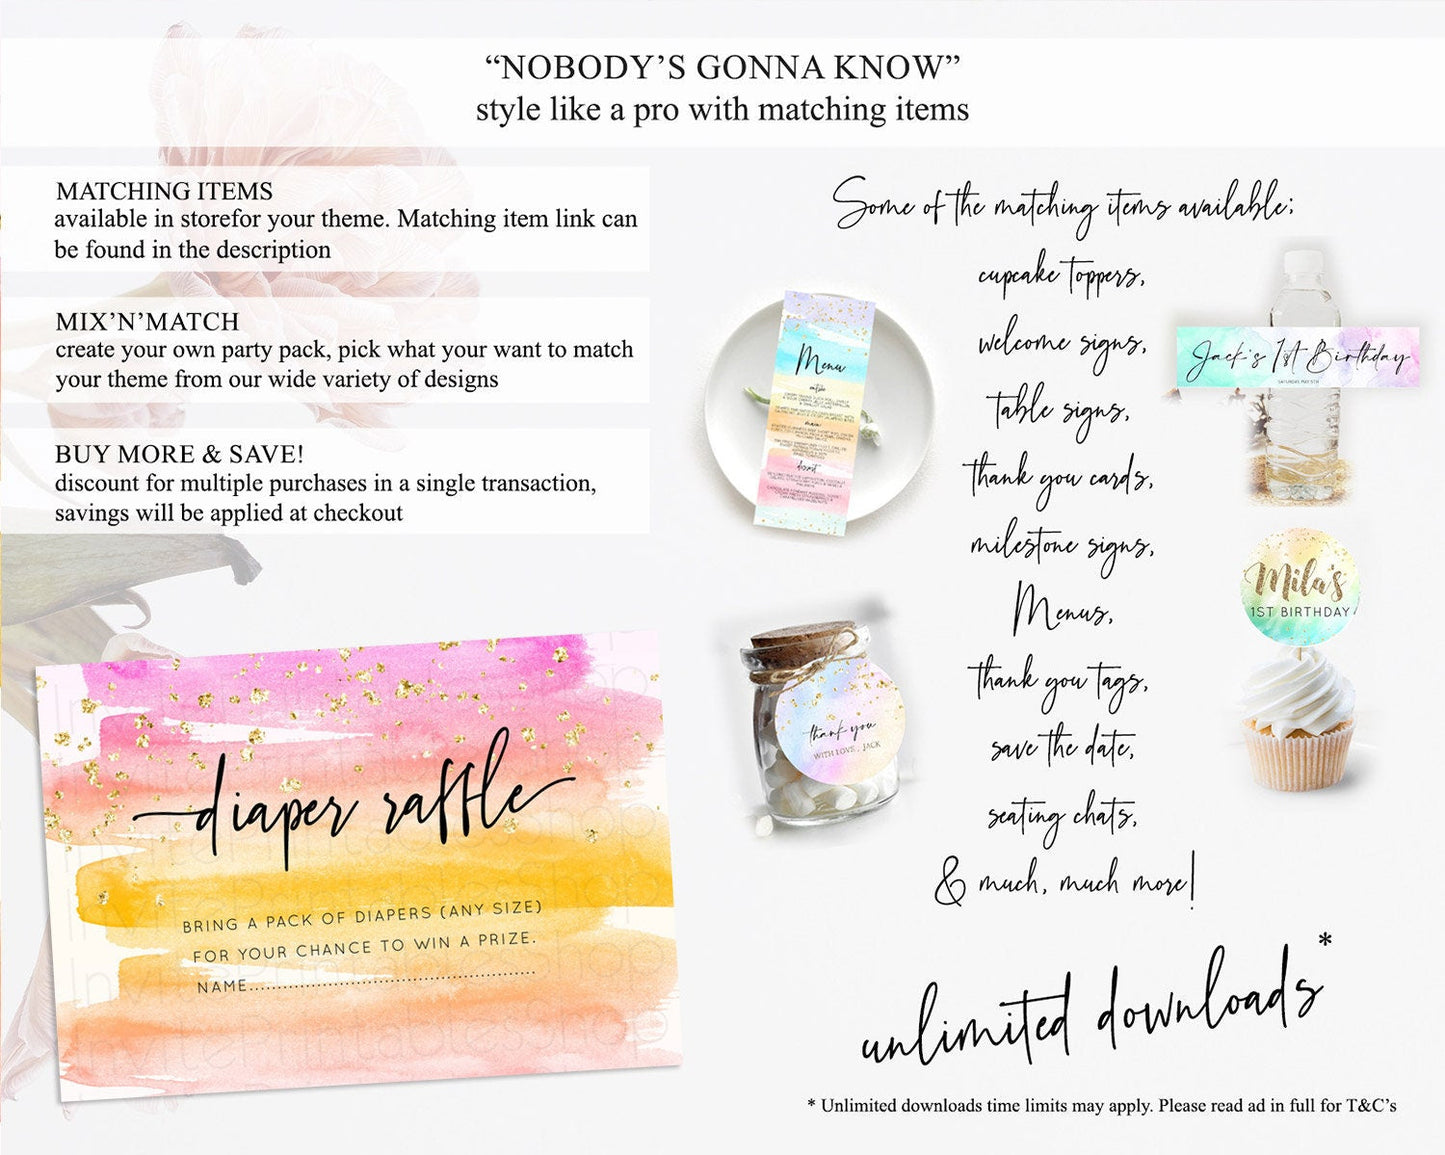 “NOBODY’S GONNA KNOW”
style like a pro with matching items
MATCHING ITEMS
available in storefor your theme. Matching item link can
be found in the description
MIX’N’MATCH
create your own party pack, pick what your want to match
your theme from our wide variety of designs
BUY MORE & SAVE!
discount for multiple purchases in a single transaction,
savings will be applied at checkout
diaper raffle
BRING A PACK OF DIAPERS (ANY SIZE)
FOR YOUR CHANCE TO WIN A PRIZE.
NAME....................................................
InvitePrintablesShop
Some of the matching items available;
cupcake toppers,
welcome signs,
table signs,
thank you cards,
milestone signs,
Menus,
thank you tags,
save the date,
seating chats,
& much, much more!
Menu
entrée
main
dessert
Jack's 1st Birthday
SATURDAY, MAY 5TH
Mila's
1ST BIRTHDAY
thank you
WITH LOVE, JACK
unlimited downloads*
* Unlimited downloads time limits may apply. Please read ad in full for T&C’s